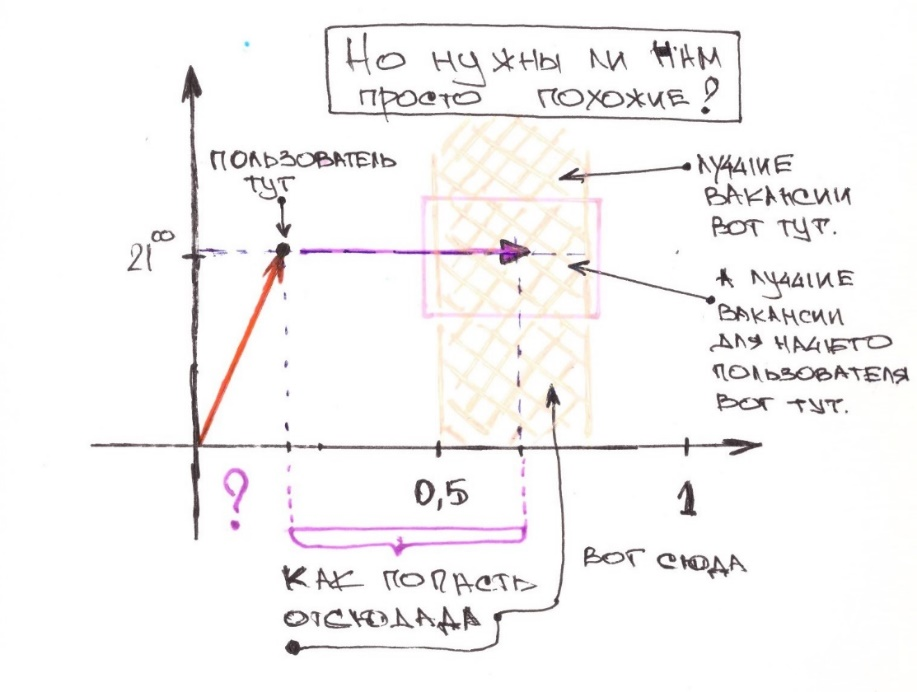 Но нужны ли нам
просто похожие?
пользователь
тут
лучшие
вакансии
вот тут.
21⁰⁰
А лучшие
вакансии
для нашего
пользователя
вот тут.
?
0,5
1
как попасть
отсюдада
вот сюда